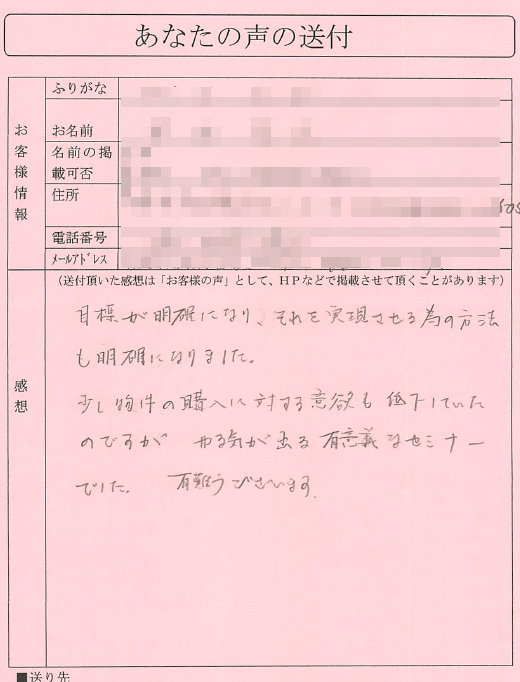 あなたの声の送付
お客様情報
ふりがな
お名前
名前の掲
載可否
住所
電話番号
メールアドレス
(送付頂いた感想は「お客様の声」として、HPなどで掲載させて頂くことがあります)
感想
目標が明確になり、それを実現させる為の方法
も明確になりました。
少し物件の購入に対する意欲も低下していた
のですが やる気が出る有意義なセミナー
でした。 有難うございます。
■送り先